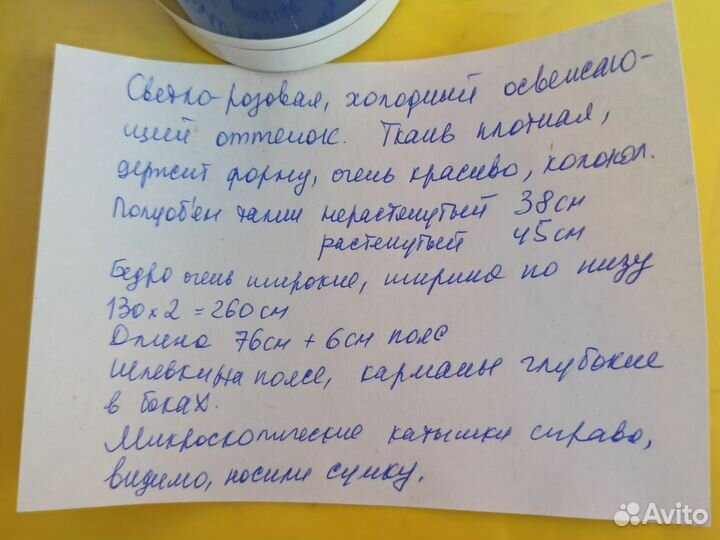 Светло-розовая, холодный освежаю-
щий оттенок. Ткань плотная,
держит форму, очень красиво, колокол.
Полуоб'ем талии нерастянутый 38см
растянутый 45см
Бедро очень широкие, ширина по низу
130х2 = 260см
Длина 76см + 6см пояс
Шлевки на поясе, карманы глубокие
в боках.
Микроскопические катышки справа,
видимо, носили сумку.
Avito